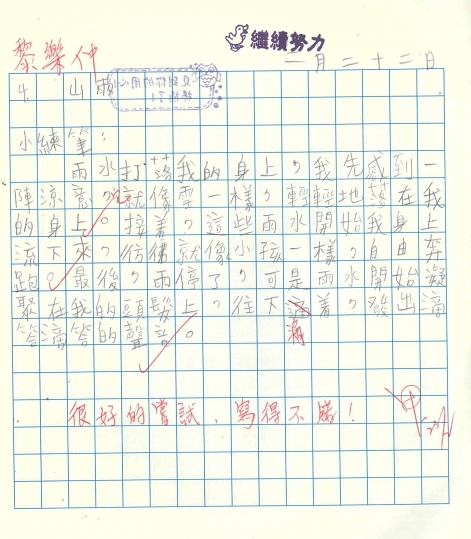 繼續努力
黎樂仲
一月二十二日
4. 山雨
小練筆：
雨水打落我的身上，我先感到一
陣涼意，就像雪一樣，輕輕地落在我
的身上。接着，這些雨水開始我身上
流下來，彷彿就像小孩一樣，自由奔
跑。最後，雨停了，可是雨水開始凝
聚在我的頭髮上，往下滴着，發出滴
答滴答的聲音。
滴
很好的嘗試，寫得不錯！